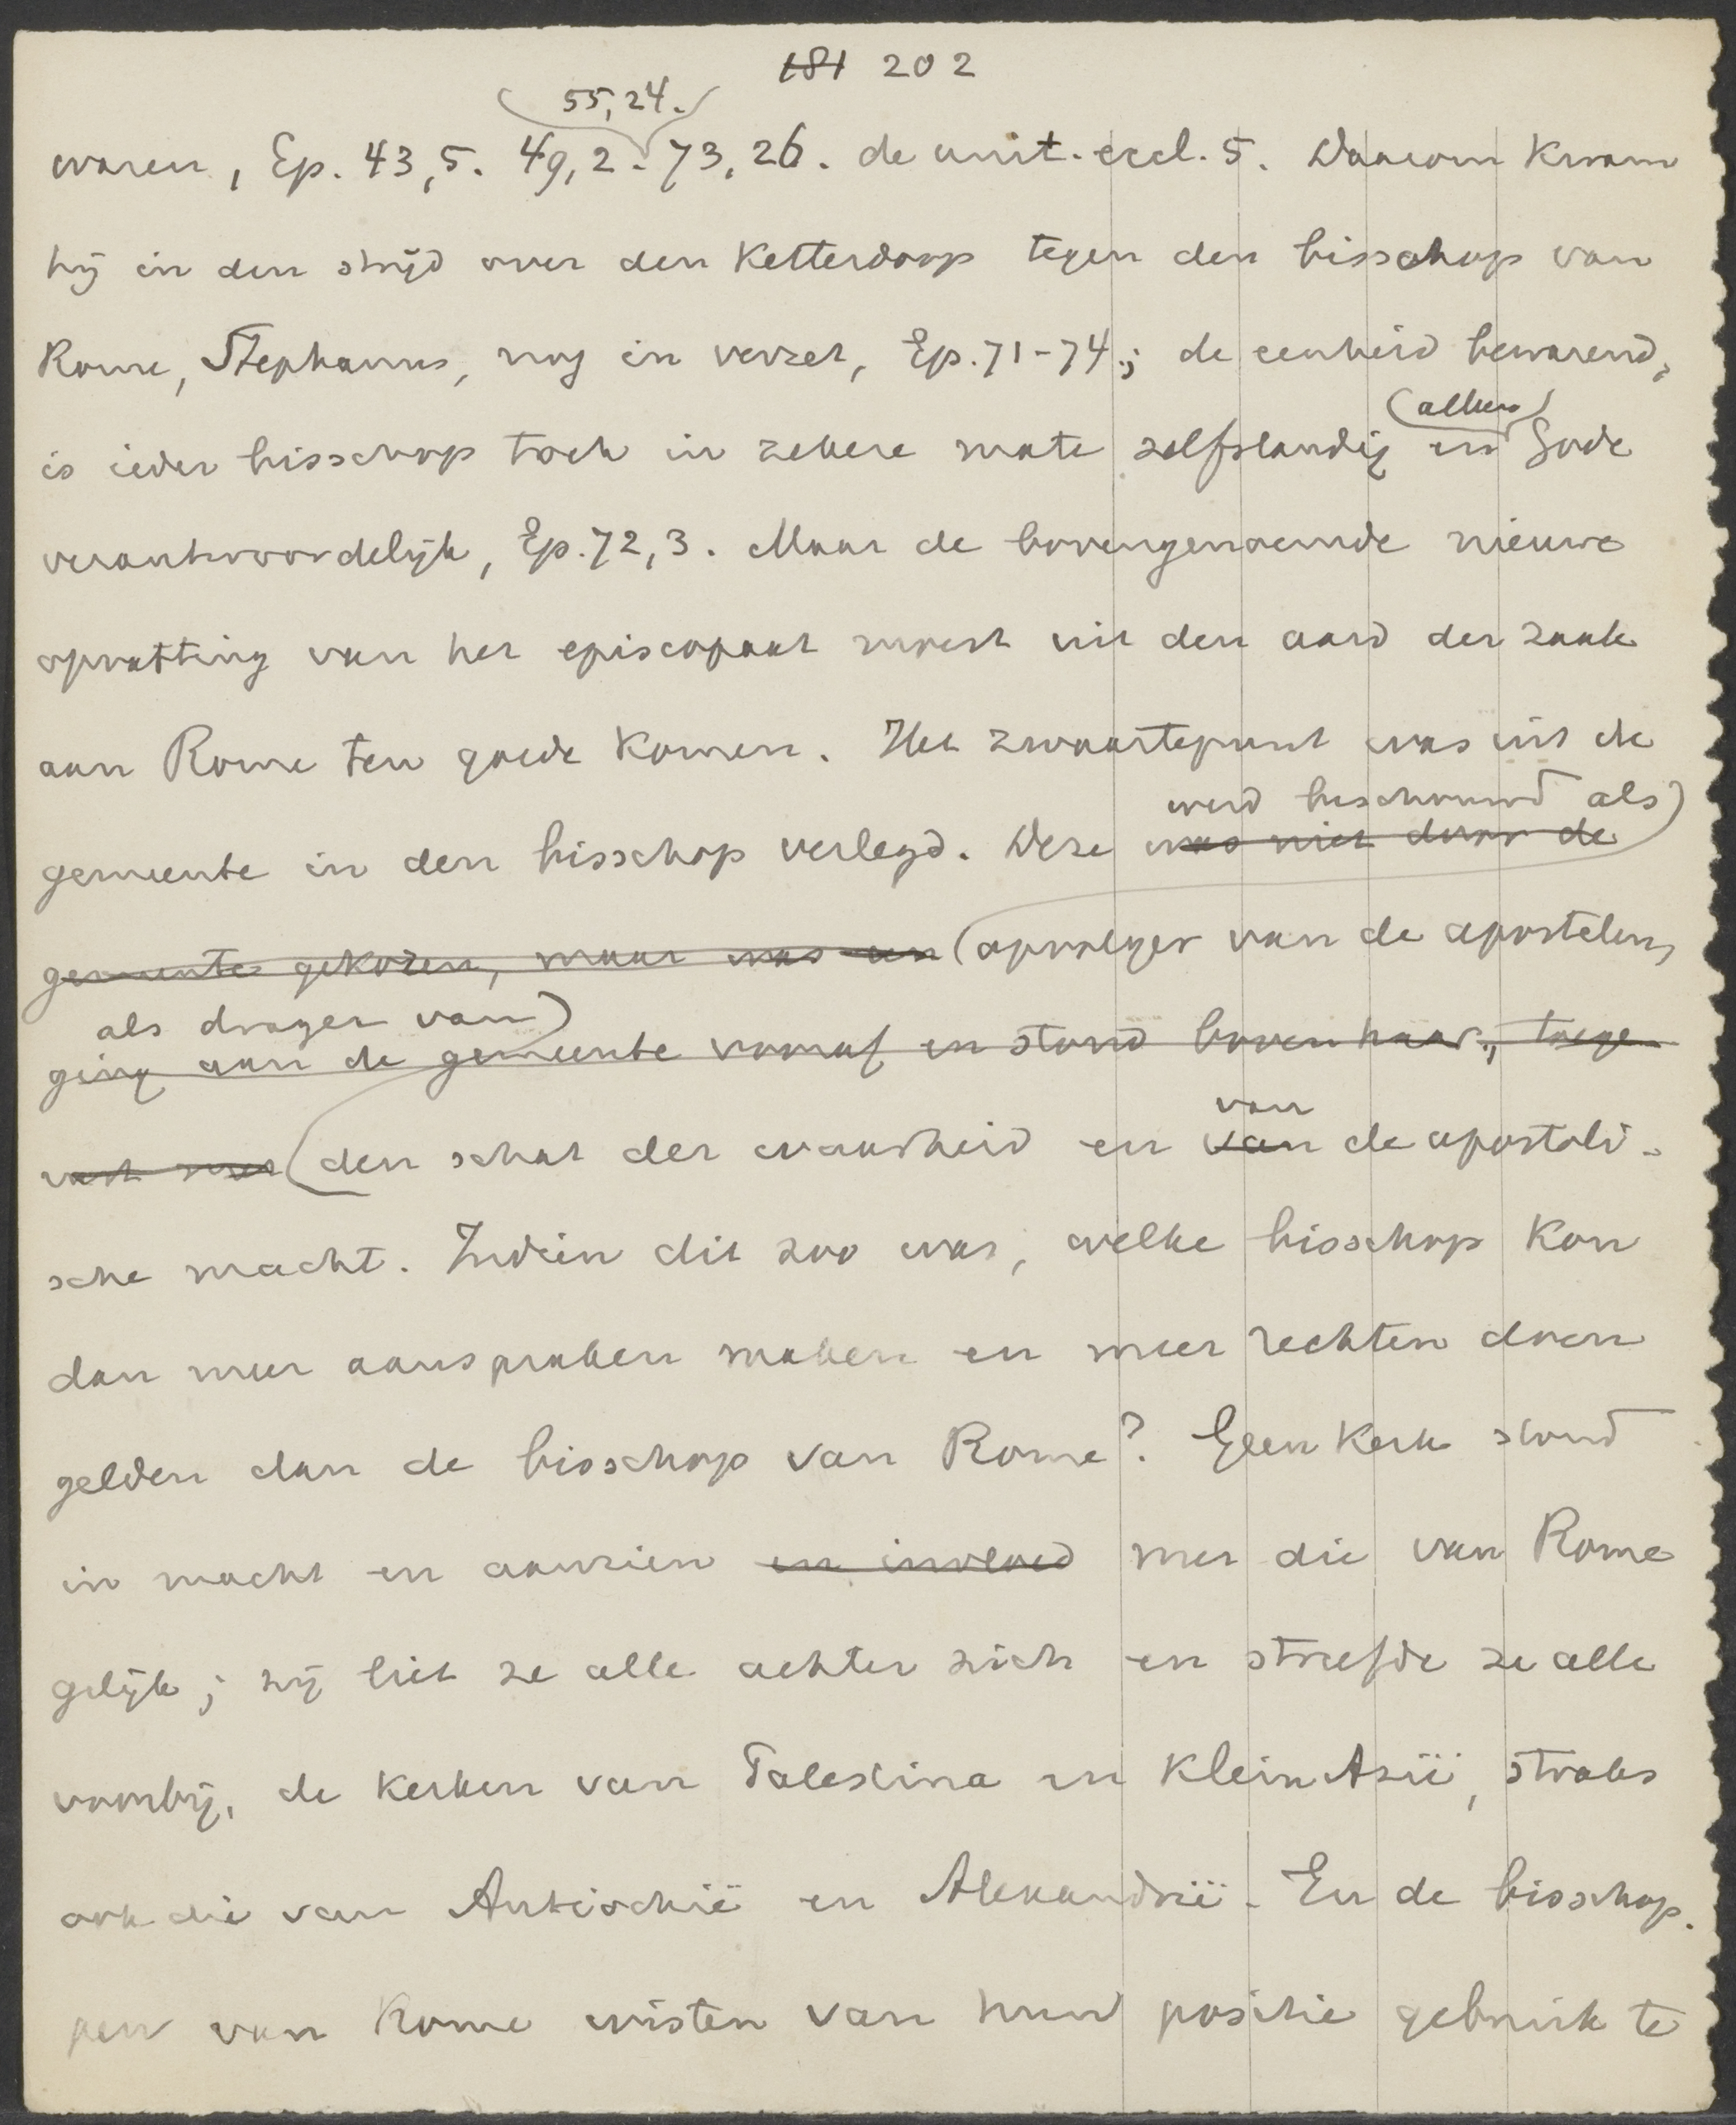 181 202
55,24.
waren, Ep. 43,5. 49,2. 73,26. de unit. eccl. 5. Daarom kwam
hij in den strijd over den Ketterdoop tegen den bisschop van
Rome, Stephanus, nog in verzet, Ep. 71-74.; de eenheid bewarend,
(alleen)
is ieder bisschop toch in zekere mate zelfstandig en Gode
verantwoordelijk, Ep. 72,3. Maar de bovengenoemde nieuwe
opvatting van het episcopaat moest uit den aard der zaak
aan Rome ten goede komen. Het zwaartepunt was uit de
werd beschouwd als)
gemeente in den bisschop verlegd. Deze was niet door de
gemeente gekozen, maar was een (opvolger van de apostelen,
als drager van)
ging aan de gemeente vooraf en stond boven haar; toege
rust met (den schat der waarheid en van de apostoli-
van
sche macht. Indien dit zoo was, welke bisschop kon
dan meer aanspraken maken en meer rechten doen
gelden dan de bisschop van Rome? Geen kerk stond
in macht en aanzien en invloed met die van Rome
gelijk; zij liet ze alle achter zich en streefde ze alle
voorbij, de kerken van Palestina en Klein Azië, straks
ook die van Antiochië en Alexandrië. En de bisschop-
pen van Rome wisten van hun positie gebruik te